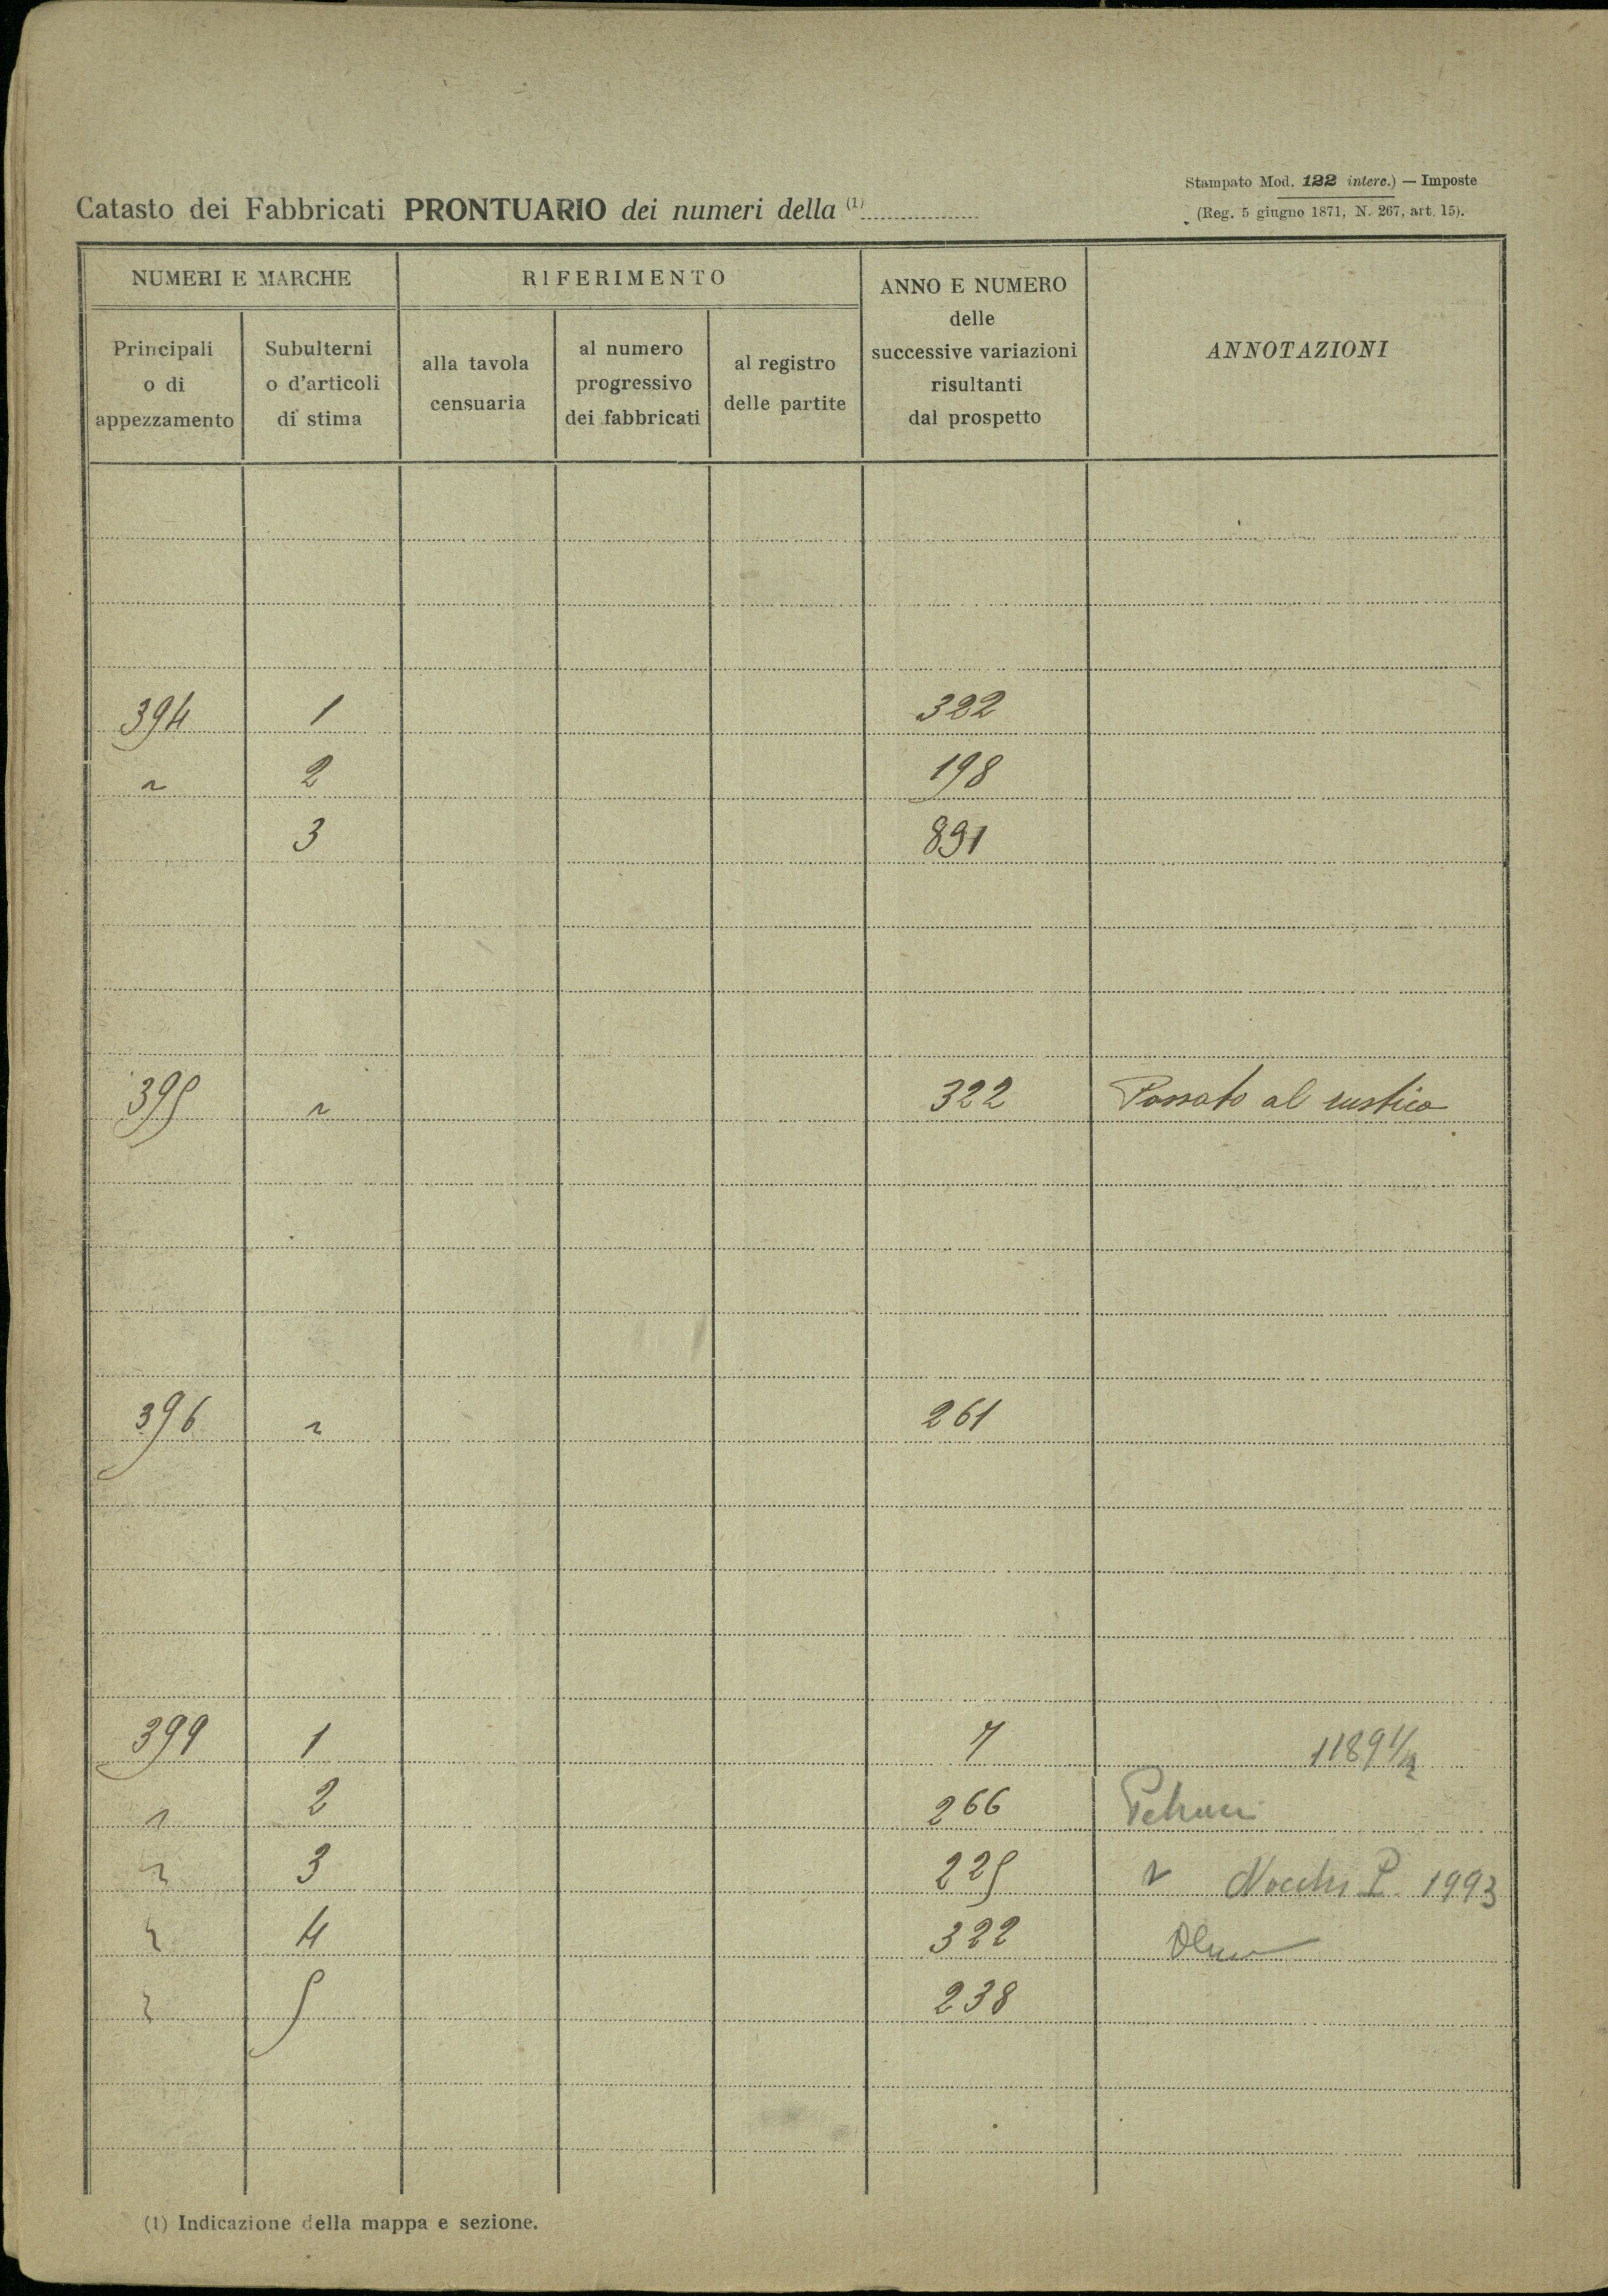 Stampato Mod. 122 interc.) — Imposte
(Reg. 5 giugno 1871, N. 267, art. 15).
Catasto dei Fabbricati PRONTUARIO dei numeri della (1)
NUMERI E MARCHE
RIFERIMENTO
ANNO E NUMERO
delle
successive variazioni
risultanti
dal prospetto
ANNOTAZIONI
Principali
o di
appezzamento
Subulterni
o d'articoli
di stima
alla tavola
censuaria
al numero
progressivo
dei fabbricati
al registro
delle partite
394 1 322
" 2 198
3 891
395 " 322 Passato al rustico
396 " 261
399 1 7 1189 1/2
" 2 266
" 3 225 " Nocchi P. 1993
" 4 322
" 5 238
(1) Indicazione della mappa e sezione.